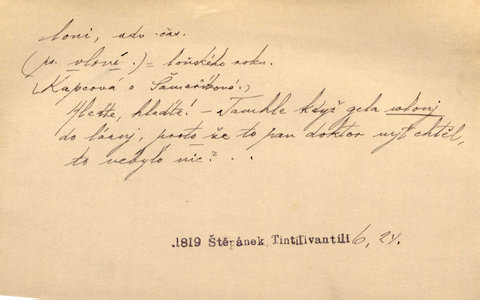 loni, adv. čas.
(ps. vloni.) = loňského roku.
(Kupcová o Šamaříkové:)
Hleďte, hleďte! – Tamhle když gela wlonj
do láznj, proto že to pan doktor mjt chtěl,
to nebylo nic? . .
.1819 Štěpánek, Tintilivantili 6, 24.